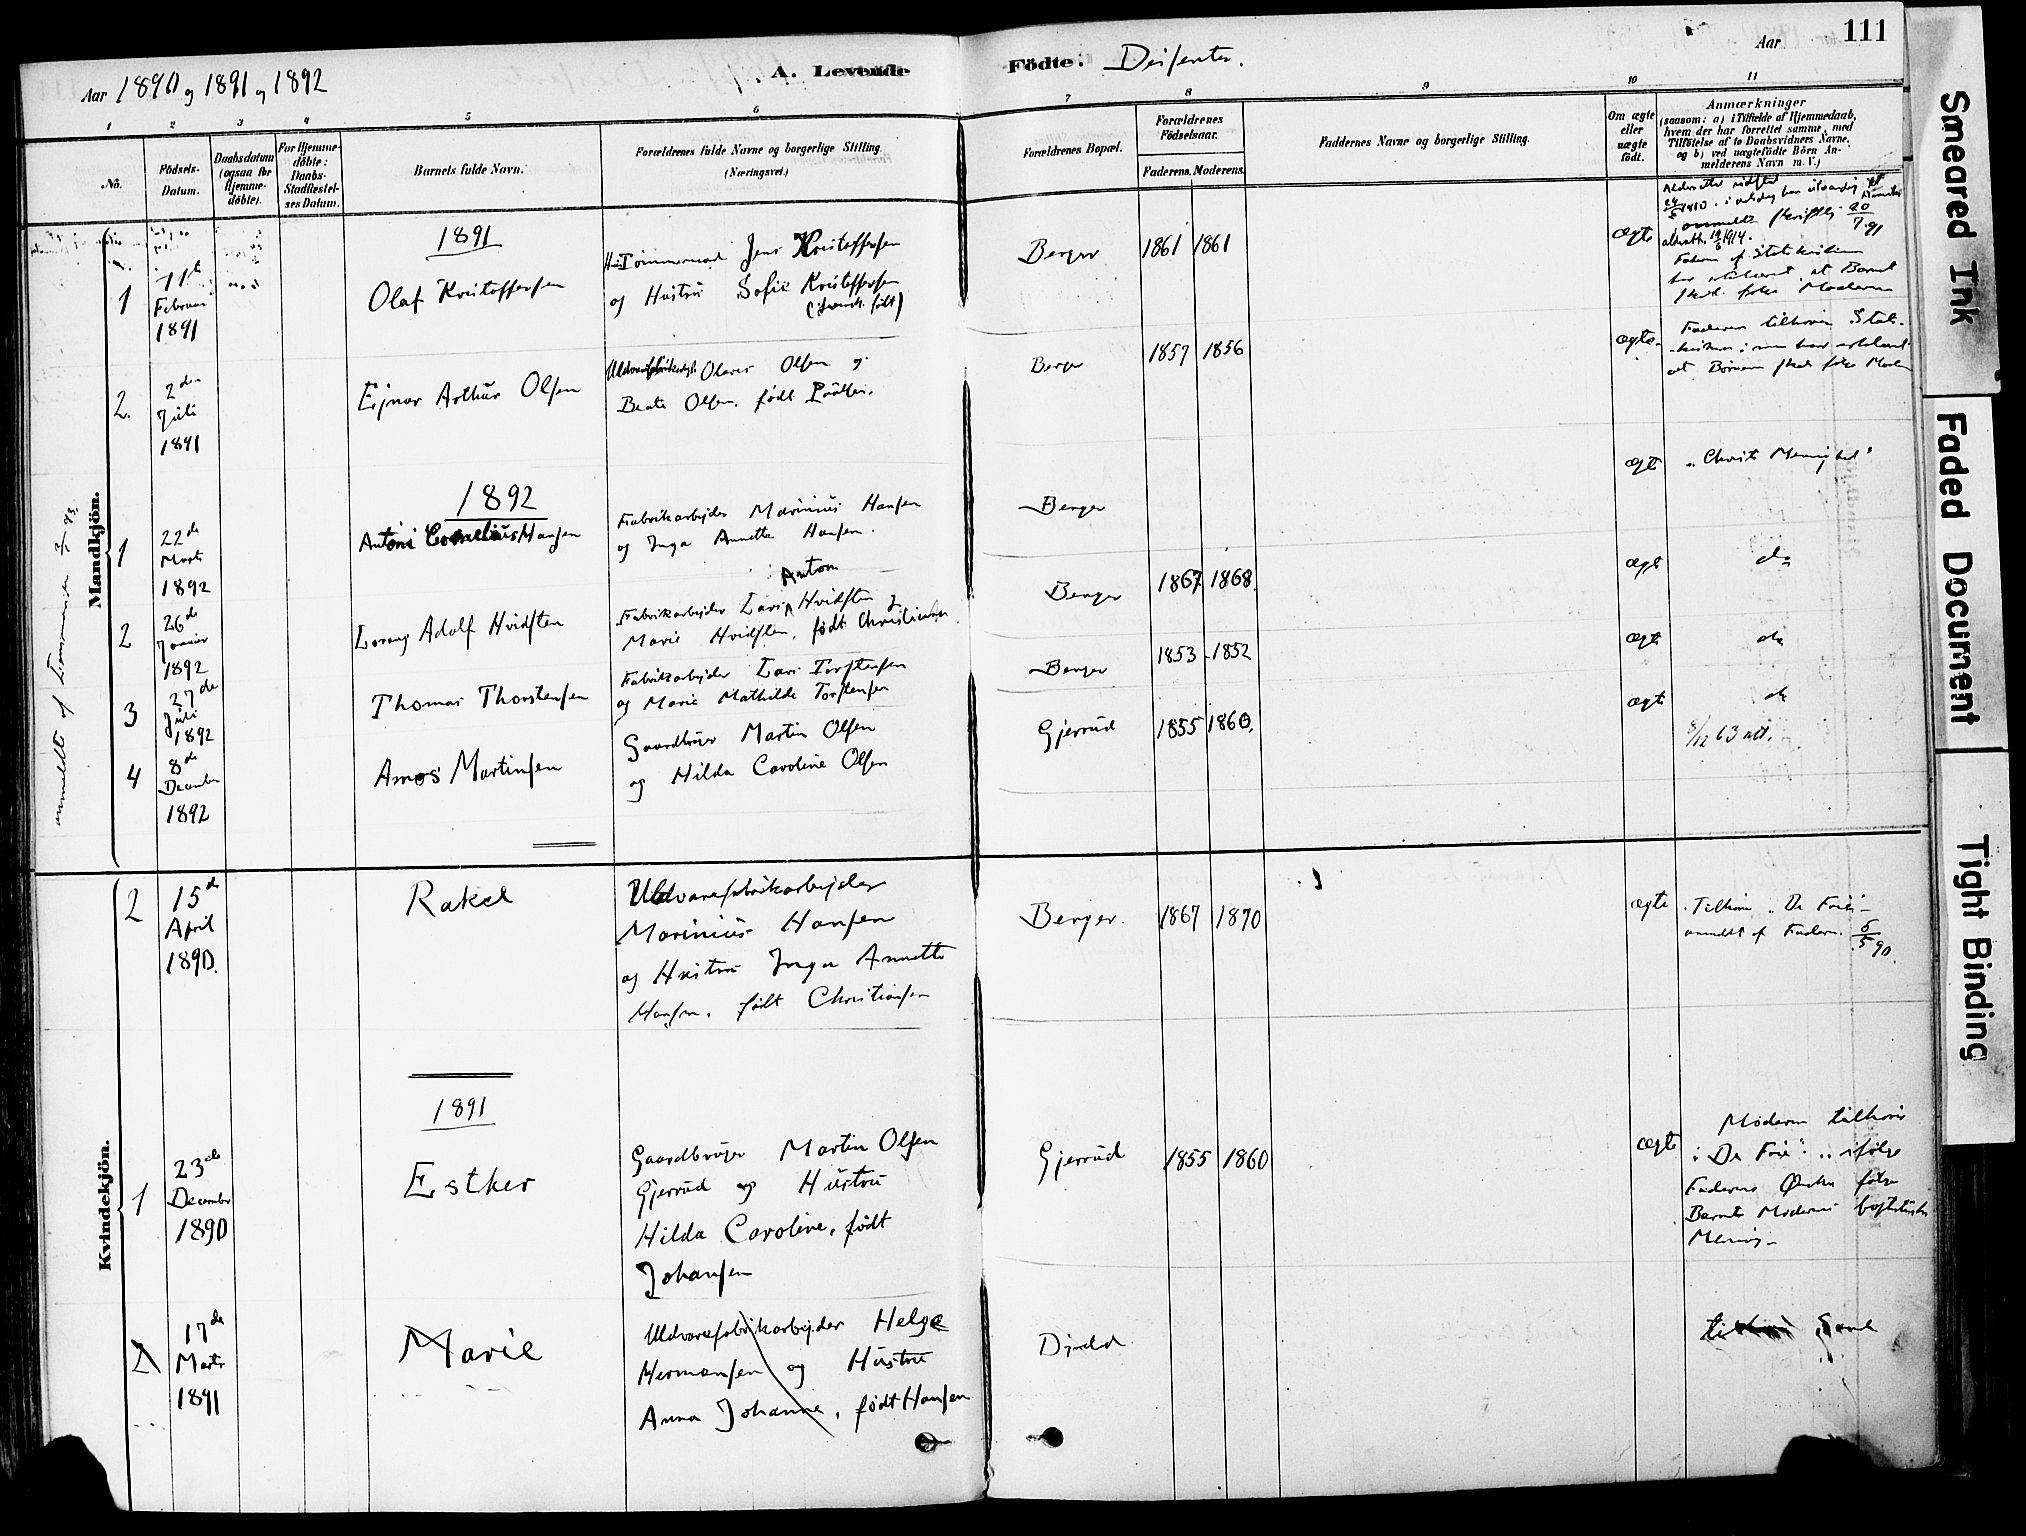 111
Aar 1890 og 1891 og 1892
A. Levende Födte. Disenter.
Aar
1 2 3 4 5 6 7 8 9 10 11
No.
Födsels-
Datum.
Daabsdatum
(ogsaa for
Hjemme-
döbte).
For Hjemme-
döbte:
Daabs-
Stadfæstel-
ses Datum.
Barnets fulde Navn.
Forældrenes fulde Navne og borgerlige Stilling
(Næringsvei.)
Forældrenes Bopæl.
Forældrenes
Födselsaar.
Faderens. Moderens.
Faddernes Navne og borgerlige Stilling.
Om ægte
eller
uægte
födt.
Anmærkninger
(saasom: a) i Tilfælde af Hjemmedaab,
hvem der har forrettet samme, med
Tilföielse af to Daabsvidners Navne,
og b) ved uægtefödte Börn An-
melderens Navn m. V.)
Mandkjön.
1891
1
11te
Februar
1891
Olaf Kristoffersen
Tömmermand Jens Kristoffersen
og Hustru Sofie Kristoffersen
Berger
1861 1861
ægte
20/7 91
Faderen af Statskirken
har erklæret, at Barnet
skal følge Moderen
2.
2den
Juli
1891
Ejnar Arthur Olsen
Olaves Olsen og
Beate Olsen, født
Berger
1857 1856
ægte
Faderen tilhører Stats-
kirken; men har erklæret
at Børnene skal følge Moderen
1892
1
22de
Marts
1892
Antoni Cornelius Hansen
Fabrikarbejder Marinius Hansen
og Inga Annette Hansen.
Berger
ægte
"Christi Menighed"
2
26de
Januar
1892
Lorang Adolf Hvidsten
Fabrikarbejder Lars Anton Hvidsten og
Marie Hvidsten, født Christiansen
Berger
1867 1868.
ægte
do
3
27de
Juli
1892
Thomas Thorstensen
Fabrikarbejder Lars Torstensen
og Marie Mathilde Torstensen
Berger
1853 1852
ægte
do
4
8de
December
1892
Amos Martinsen
Gaardbruger Martin Olsen
og Hilda Caroline Olsen
Gjerrud
1855 1860.
ægte
do
8/12 63 att.
Kvindekjön.
2
15de
April
1890.
Rakel
Uldvarefabrikarbejder
Marinius Hansen
og Hustru Inga Annette
Hansen, født Christiansen
Berger.
1867 1870
ægte
Tilhører "De Frie"
anmeldt af Faderen. 6/5 90.
1891
1
23de
December
1890
Esther
Gaardbruger Martin Olsen
Gjerrud og Hustru
Hilda Caroline, født
Johansen
Gjerrud
1855 1860
ægte
Moderen tilhører
"De Frie", ifølge
Faderens Ønske følge
Barnet Moderens
2
17de
Marts
1891
Marie
Uldvarefabrikarbejder Helge
Hermansen og Hustru
Anna Johanne, født Hansen
Smeared Ink
Faded Document
Tight Binding